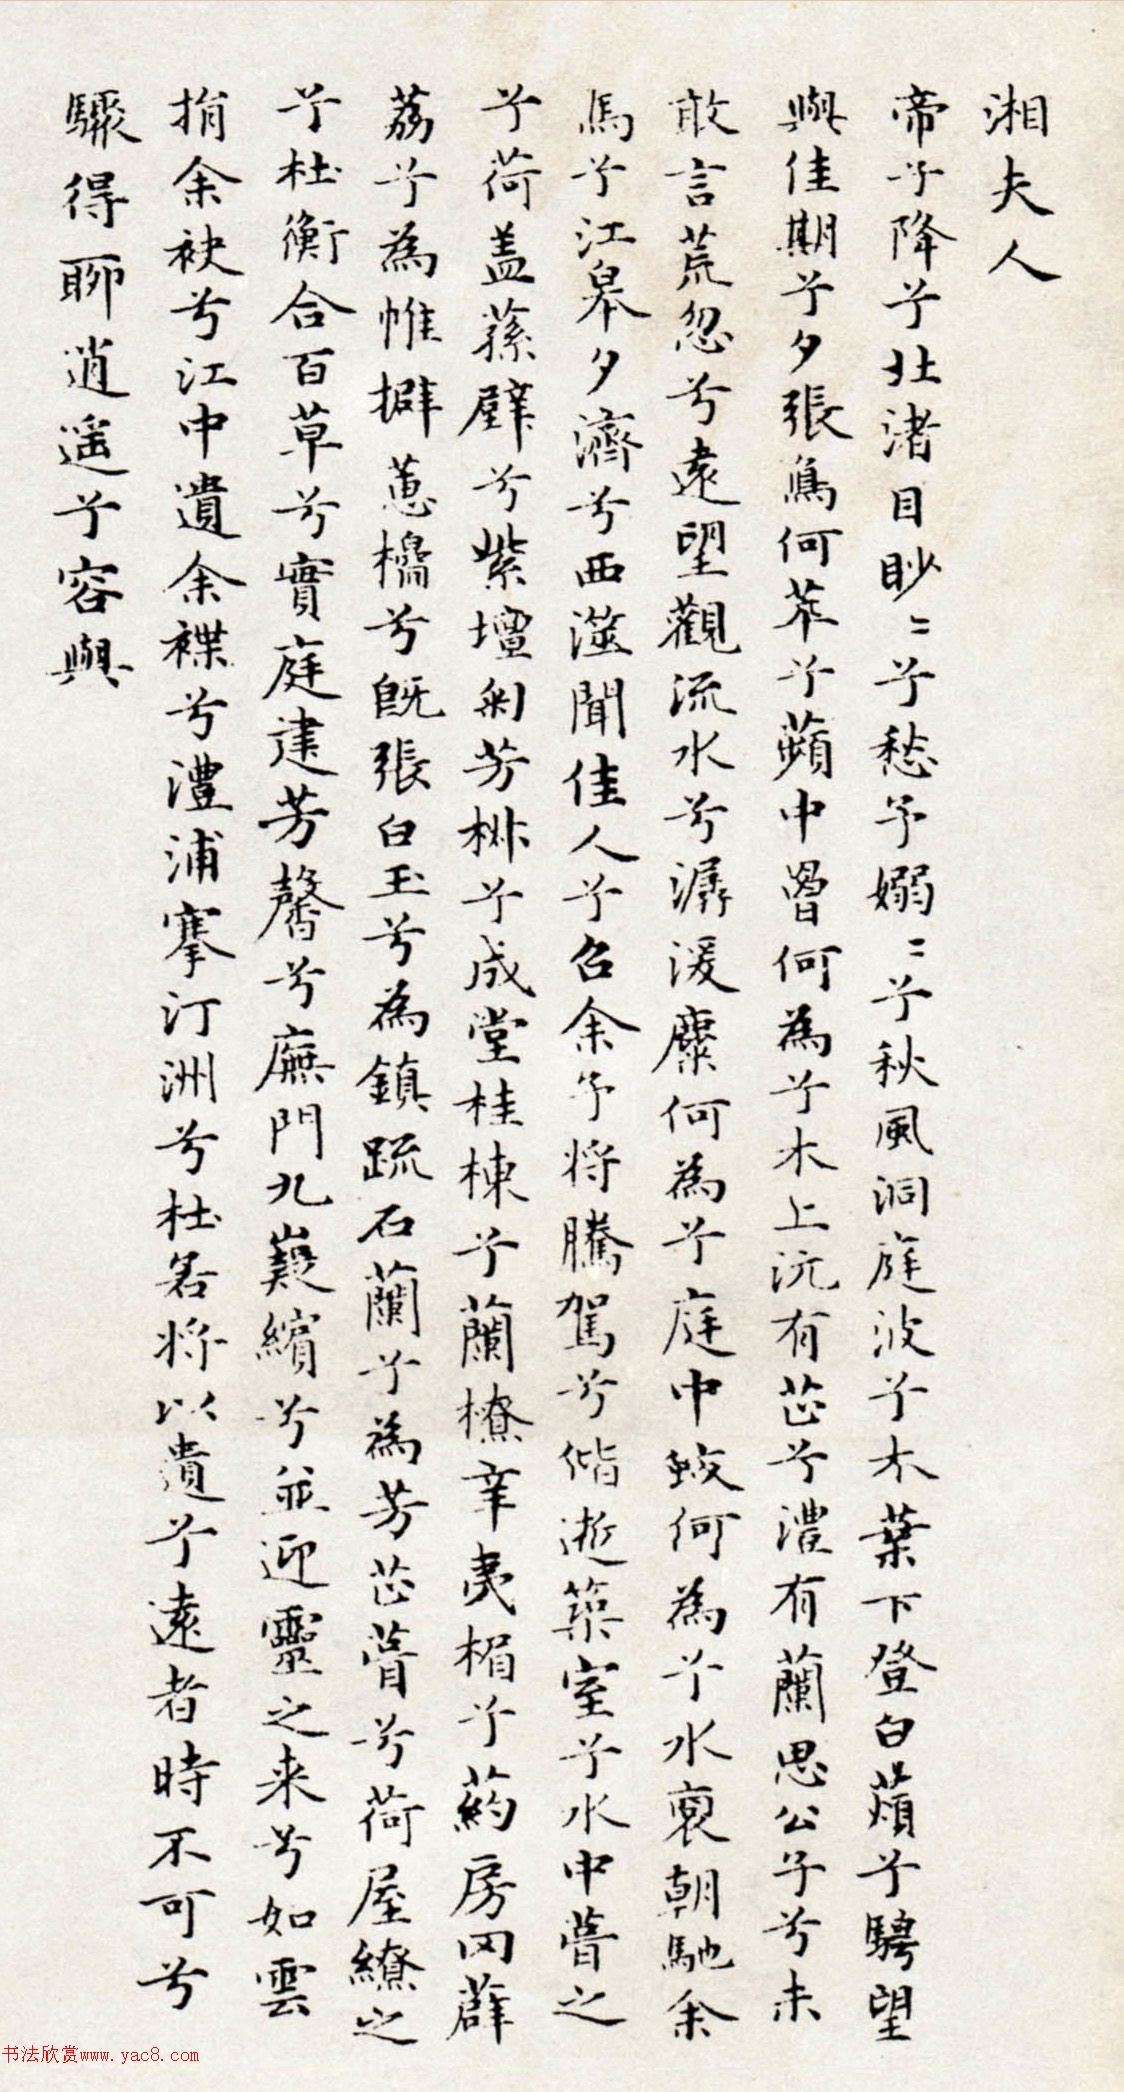 湘夫人
帝子降兮北渚目眇〻兮愁予嫋〻兮秋風洞庭波兮木葉下登白薠兮騁望
與佳期兮夕張鳥何萃兮蘋中罾何為兮木上沅有芷兮澧有蘭思公子兮未
敢言荒忽兮遠望觀流水兮潺湲麋何為兮庭中蛟何為兮水裔朝馳余
馬兮江皋夕濟兮西澨聞佳人兮召余予將騰駕兮偕逝築室兮水中葺之
兮荷盖蓀壁兮紫壇匊芳椒兮成堂桂棟兮蘭橑辛夷楣兮葯房罔薜
荔兮為帷擗蕙櫋兮既張白玉兮為鎮疏石蘭兮為芳芷葺兮荷屋繚之
兮杜衡合百草兮實庭建芳馨兮廡門九嶷繽兮並迎靈之来兮如雲
捐余袂兮江中遺余褋兮澧浦搴汀洲兮杜若將以遺兮遠者時不可兮
驟得聊逍遥兮容與
书法欣赏www.yac8.com